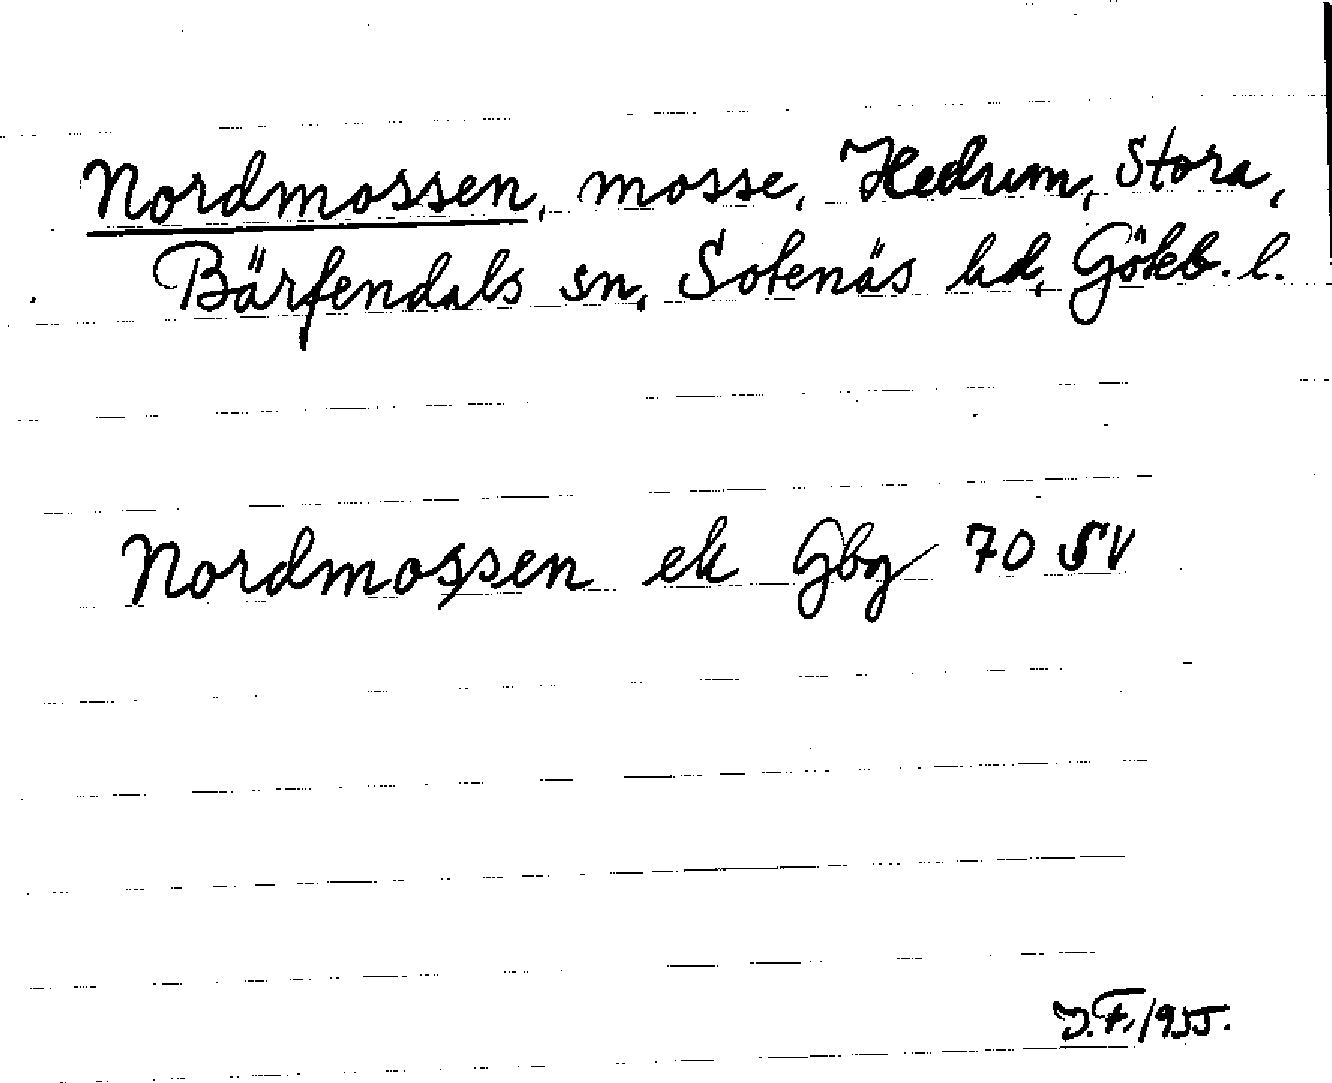 Nordmossen, mosse, Hedrum, Stora,
Bärfendals sn, Sotenäs hd, Göteb. l.
Nordmossen ek Gbg 70 SV
J.F. 1955.